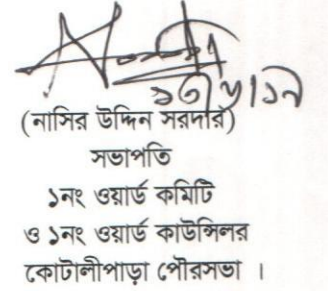 (নাসির উদ্দিন সরদার)
সভাপতি
১নং ওয়ার্ড কমিটি
ও ১নং ওয়ার্ড কাউন্সিলর
কোটালীপাড়া পৌরসভা ।